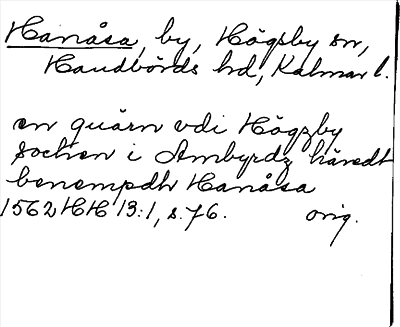 Hanåsa, by, Högsby sn,
Handbörds hd, Kalmar l.
en quärn vdi Högzby
sochen i Ambyrdz häredt
benempdh Hanåsa
1562 HH 13:1, s. 76. orig.